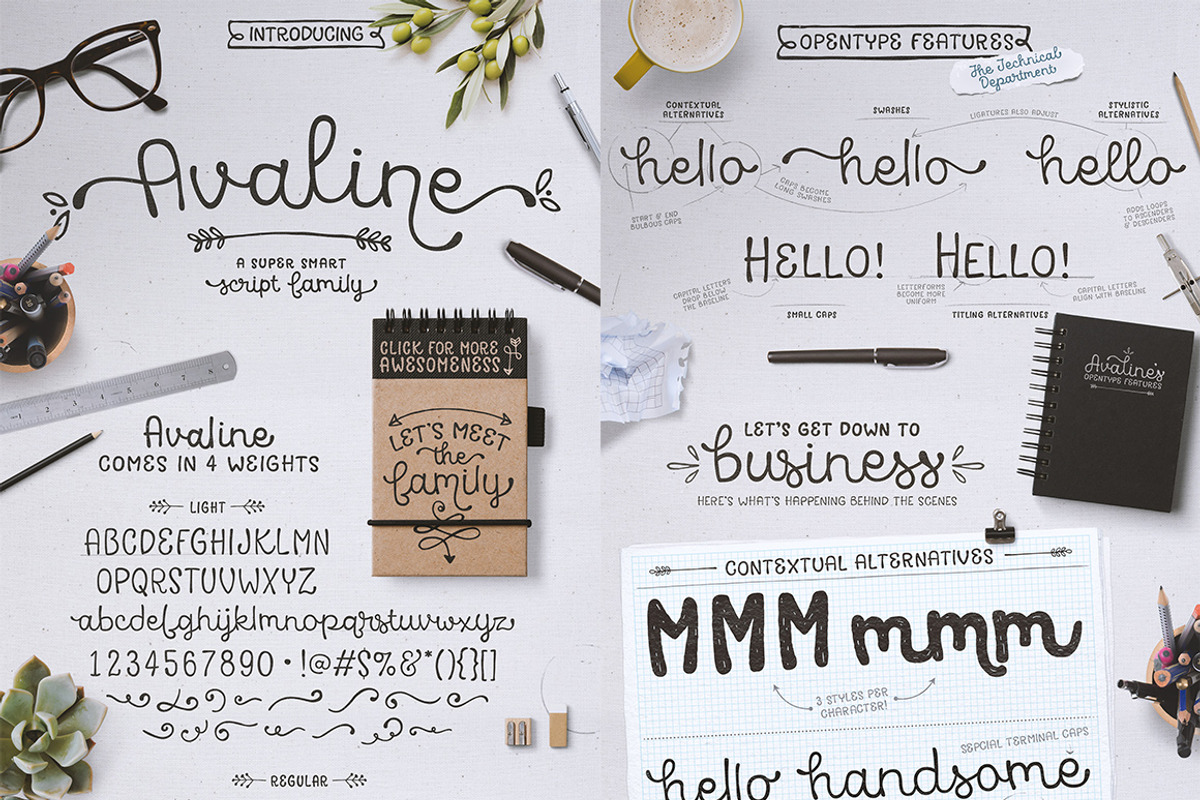 INTRODUCING
Avaline
A SUPER SMART
script family
CLICK FOR MORE
AWESOMENESS
LET'S MEET
the
family
Avaline
COMES IN 4 WEIGHTS
LIGHT
ABCDEFGHIJKLMN
OPQRSTUVWXYZ
abcdefghijklmnopqrstuvwxyz
1234567890•!@#$%&*(){}[]
REGULAR
OPENTYPE FEATURES
The Technical
Department
CONTEXTUAL
ALTERNATIVES
SWASHES
LIGATURES ALSO ADJUST
STYLISTIC
ALTERNATIVES
hello
hello
hello
START & END
BULBOUS CAPS
CAPS BECOME
LONG SWASHES
ADDS LOOPS
TO ASCENDERS
& DESCENDERS
HELLO!
HELLO!
CAPITAL LETTERS
DROP BELOW
THE BASELINE
LETTERFORMS
BECOME MORE
UNIFORM
CAPITAL LETTERS
ALIGN WITH BASELINE
SMALL CAPS
TITLING ALTERNATIVES
Avaline's
OPENTYPE FEATURES
LET'S GET DOWN TO
business
HERE'S WHAT'S HAPPENING BEHIND THE SCENES
CONTEXTUAL ALTERNATIVES
MMM mmm
3 STYLES PER
CHARACTER!
SEPCIAL TERMINAL CAPS
hello handsome